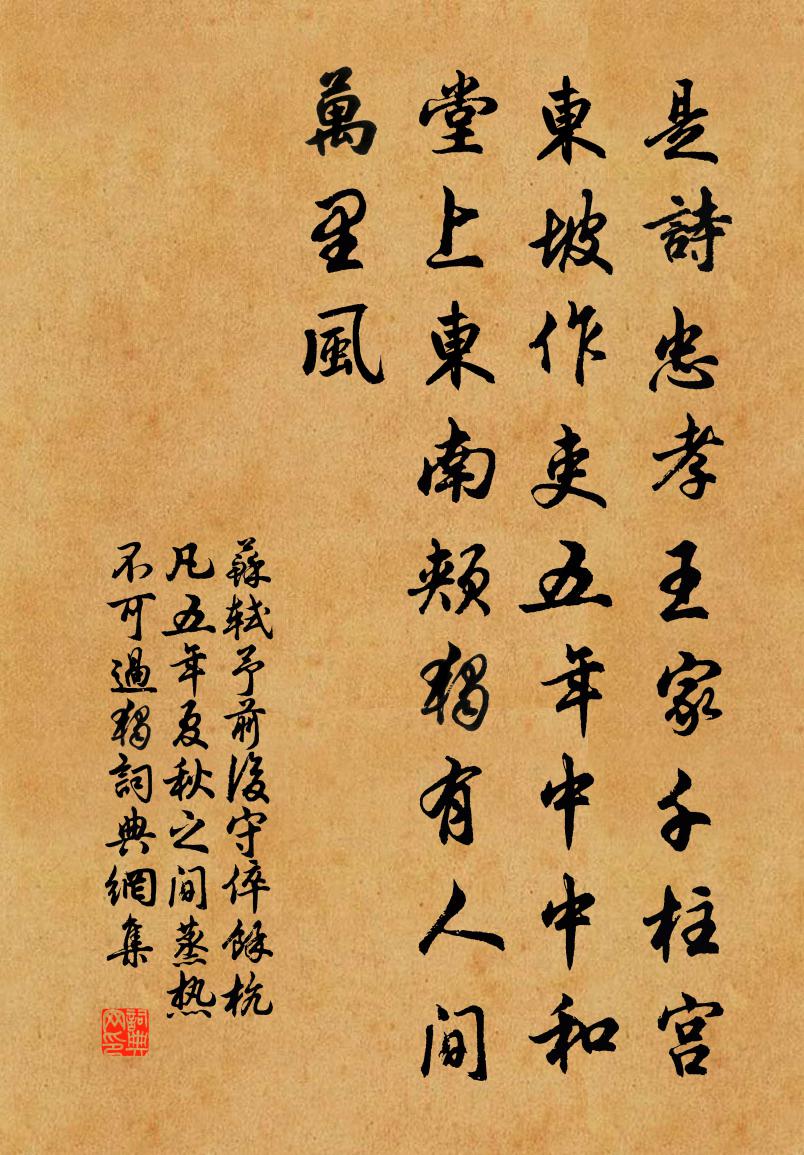 是詩忠孝王家千柱宫
東坡作吏五年中中和
堂上東南頰獨有人间
萬里風
蘇軾予前後守倅餘杭
凡五年夏秋之间蒸热
不可過獨詞典網集
詞典网印